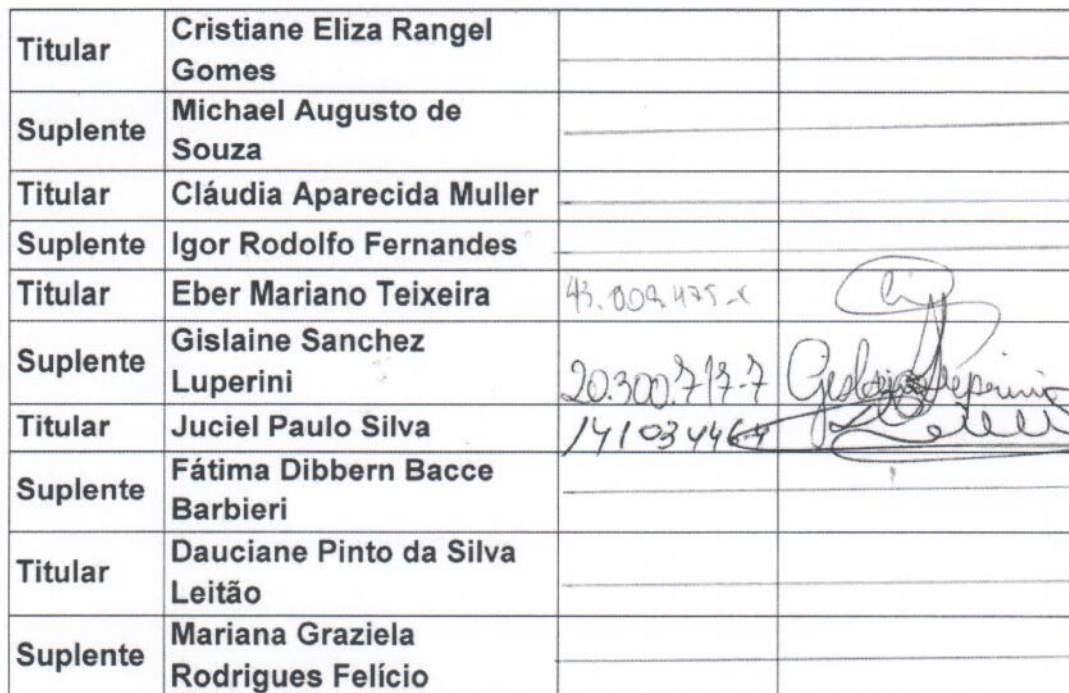 Titular Cristiane Eliza Rangel
Gomes
Suplente Michael Augusto de
Souza
Titular Cláudia Aparecida Muller
Suplente Igor Rodolfo Fernandes
Titular Eber Mariano Teixeira
Suplente Gislaine Sanchez
Luperini 20.300.717-7
Titular Juciel Paulo Silva
Suplente Fátima Dibbern Bacce
Barbieri
Titular Dauciane Pinto da Silva
Leitão
Suplente Mariana Graziela
Rodrigues Felício